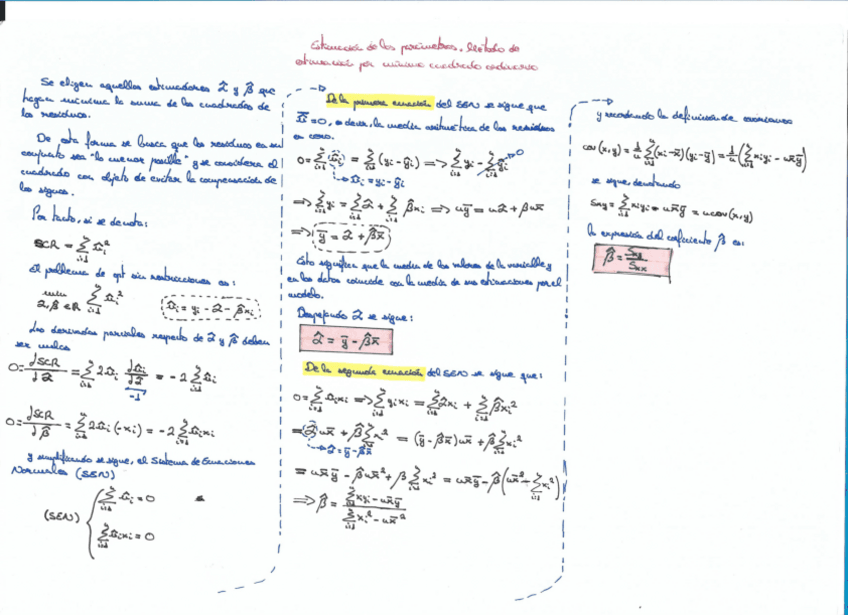 Estimación de los parámetros. Método de
estimación por mínimo cuadrado ordinario
Se eligen aquellos estimadores α̂ y β̂ que
hagan mínima la suma de los cuadrados de
los residuos.
De esta forma se busca que los residuos en su
conjunto sea "lo menor posible" y se considera el
cuadrado con objeto de evitar la compensación de
los signos.
Por tanto, si se denota:
SCR = Σᵢ₌₁ⁿ ûᵢ²
El problema de opt sin restricciones es:
min α,β∈R Σᵢ₌₁ⁿ ûᵢ²
ûᵢ = yᵢ - α̂ - β̂xᵢ
Las derivadas parciales respecto de α̂ y β̂ deben
ser nulas
0 = dSCR/dα̂ = Σᵢ₌₁ⁿ 2ûᵢ dûᵢ/dα̂ = -2 Σᵢ₌₁ⁿ ûᵢ
-1
0 = dSCR/dβ̂ = Σᵢ₌₁ⁿ 2ûᵢ(-xᵢ) = -2 Σᵢ₌₁ⁿ ûᵢxᵢ
y simplificando se sigue, el Sistema de Ecuaciones
Normales (SEN)
(SEN) { Σᵢ₌₁ⁿ ûᵢ = 0
Σᵢ₌₁ⁿ ûᵢxᵢ = 0
De la primera ecuación del SEN se sigue que
û̄ = 0, es decir, la media aritmética de los residuos
es cero.
0 = Σᵢ₌₁ⁿ ûᵢ = Σᵢ₌₁ⁿ (yᵢ - ŷᵢ) ⟹ Σᵢ₌₁ⁿ yᵢ - Σᵢ₌₁ⁿ ŷᵢ → 0
ûᵢ = yᵢ - ŷᵢ
⟹ Σᵢ₌₁ⁿ yᵢ = Σᵢ₌₁ⁿ α̂ + Σᵢ₌₁ⁿ β̂xᵢ ⟹ nȳ = nα̂ + β̂nx̄
⟹ ȳ = α̂ + β̂x̄
Esto significa que la media de los valores de la variable y
en los datos coincide con la media de sus estimaciones por el
modelo.
Despejando α̂ se sigue:
α̂ = ȳ - β̂x̄
De la segunda ecuación del SEN se sigue que:
0 = Σᵢ₌₁ⁿ ûᵢxᵢ ⟹ Σᵢ₌₁ⁿ yᵢxᵢ = Σᵢ₌₁ⁿ α̂xᵢ + Σᵢ₌₁ⁿ β̂xᵢ²
= α̂nx̄ + β̂Σᵢ₌₁ⁿ xᵢ² = (ȳ - β̂x̄)nx̄ + β̂Σᵢ₌₁ⁿ xᵢ²
α̂ = ȳ - β̂x̄
= nx̄ȳ - β̂nx̄² + β̂Σᵢ₌₁ⁿ xᵢ² = nx̄ȳ - β̂(nx̄² - Σᵢ₌₁ⁿ xᵢ²)
⟹ β̂ = (Σᵢ₌₁ⁿ xᵢyᵢ - nx̄ȳ) / (Σᵢ₌₁ⁿ xᵢ² - nx̄²)
y recordando la definición de covarianza
cov(x,y) = 1/n Σᵢ₌₁ⁿ (xᵢ - x̄)(yᵢ - ȳ) = 1/n (Σᵢ₌₁ⁿ xᵢyᵢ - nx̄ȳ)
se sigue, denotando
Sxy = Σᵢ₌₁ⁿ xᵢyᵢ - nx̄ȳ = n cov(x,y)
la expresión del coeficiente β̂ es:
β̂ = Sxy / Sxx